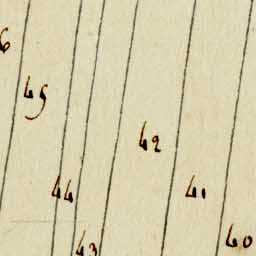 45
42
44
41
40
43